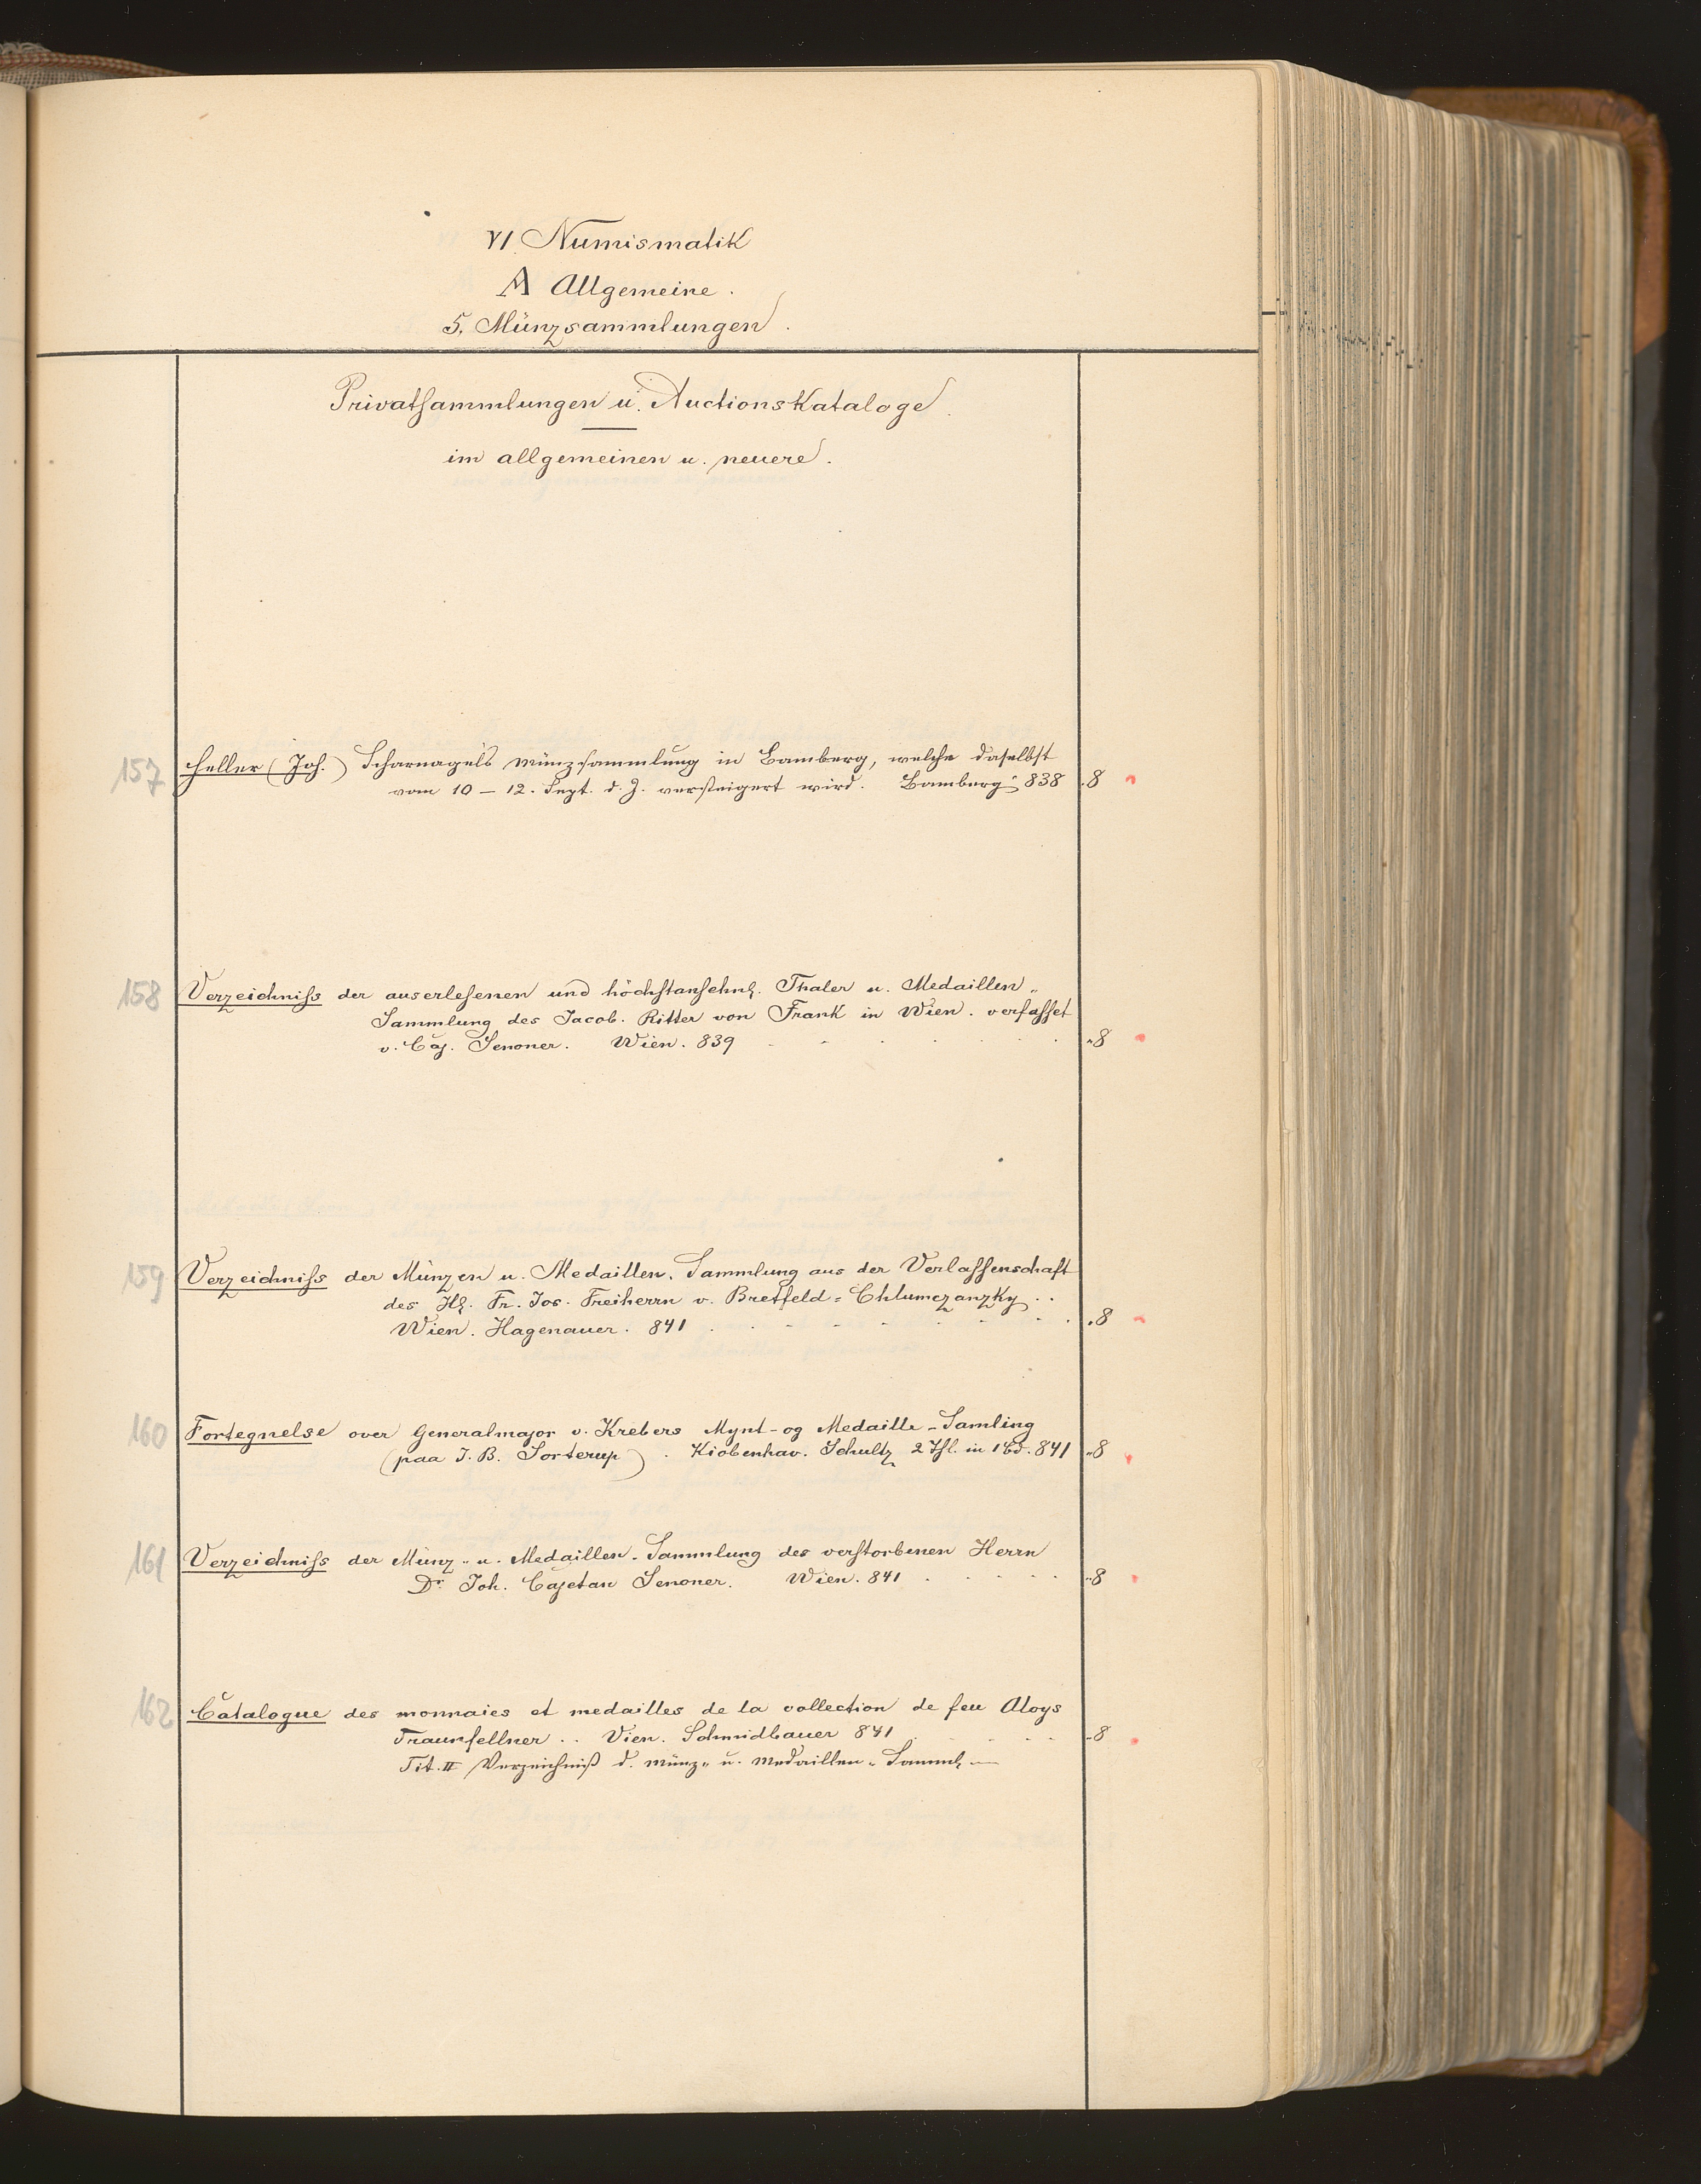 VI Numismatik
A Allgemeine.
5. Münzsammlungen.
Privatsammlungen u. Auctionskataloge.
im allgemeinen u. neuere.
157 Heller (Joh.) Scharnagels Münzsammlung in Bamberg, welche daselbst
vom 10 – 12. Sept. d. J. versteigert wird. Bamberg 838 8
158 Verzeichniss der auserlesenen und höchstansehnl. Thaler u. Medaillen-
Sammlung des Jacob. Ritter von Frank in Wien. verfasset
v. Caj. Senoner. Wien. 839 8
159 Verzeichniss der Münzen u. Medaillen-Sammlung aus der Verlassenschaft
des Hl. Fr. Jos. Freiherrn v. Bretfeld-Chlumczanzky..
Wien. Hagenauer. 841 8
160 Fortegnelse over Generalmajor v. Krebers Mynt-og Medaille-Samling
(paa J. B. Sorterup). Kiobenhav. Schultz 2 Thl. in 1 Bd. 841 8
161 Verzeichniss der Münz- u. Medaillen-Sammlung des verstorbenen Herrn
Dr. Joh. Cajetan Senoner. Wien. 841 8
162 Catalogue des monnaies et medailles de la collection de feu Aloys
Traunfellner.. Vien. Schmidbauer 841 8
Tit. II Verzeichniß d. Münz- u. Medaillen-Samml. —